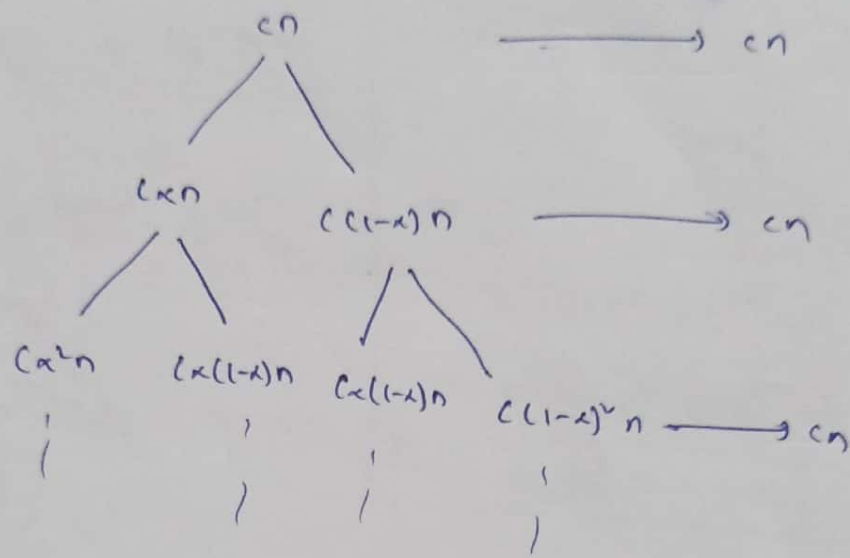 cn → cn
cαn c(1-α)n → cn
cα²n cα(1-α)n cα(1-α)n c(1-α)²n → cn